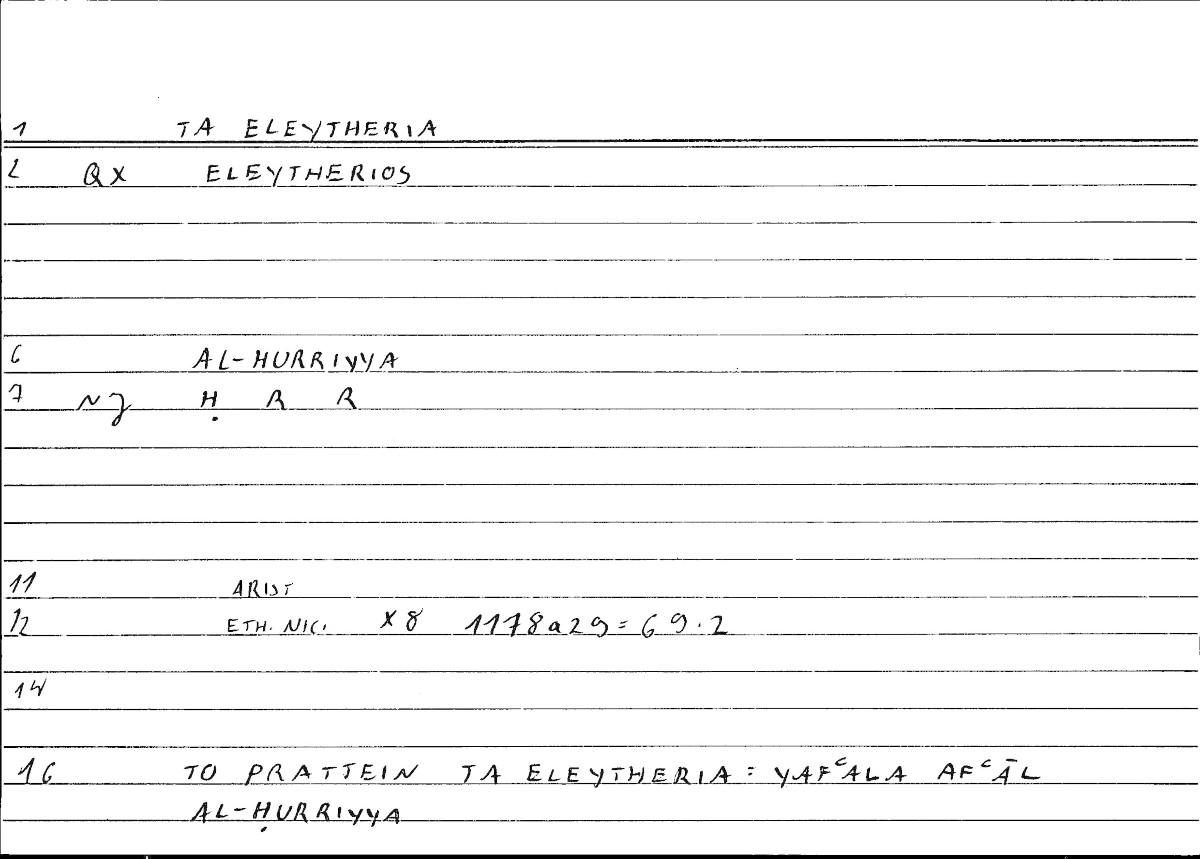 1 TA ELEYTHERIA
2 QX ELEYTHERIOS
6 AL-HURRIYYA
7 NJ Ḥ R R
11 ARIST
12 ETH. NIC. X 8 1178a29 = 69.2
14
16 TO PRATTEIN TA ELEYTHERIA = YAFᶜALA AFᶜĀL
AL-ḤURRIYYA